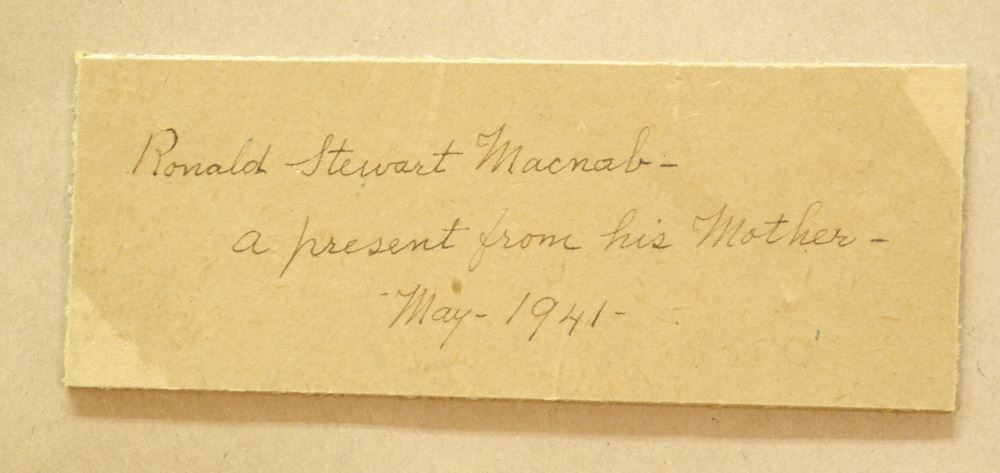 Ronald Stewart Macnab-
a present from his Mother-
May- 1941-